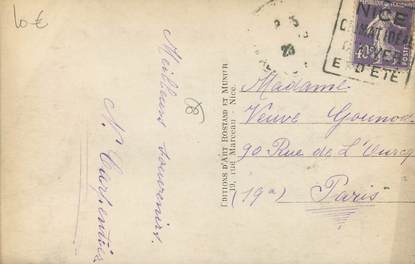 10€
Meilleurs souvenirs.
N. Carpentier
EDITIONS D'ART ROSTAND ET MUNIER
19, rue Marceau - Nice.
NICE
CLIMAT IDEAL
E - D'ETE
40c
Madame
Veuve Gounod
90 Rue de L'Ourcq
(19e) Paris